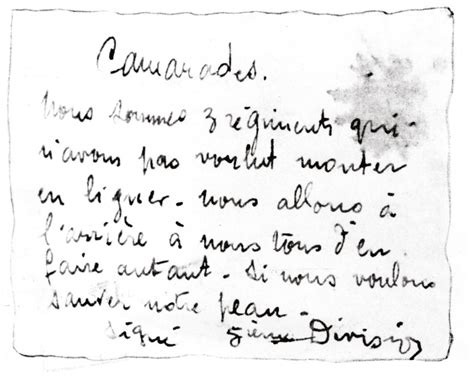 Camarades.
nous sommes 3 régiments qui
n'avons pas voulut monter
en ligner. nous allons à
l'arrière à nous tous d'en
faire autant. si nous voulons
sauver notre peau.
signé 5ième Division